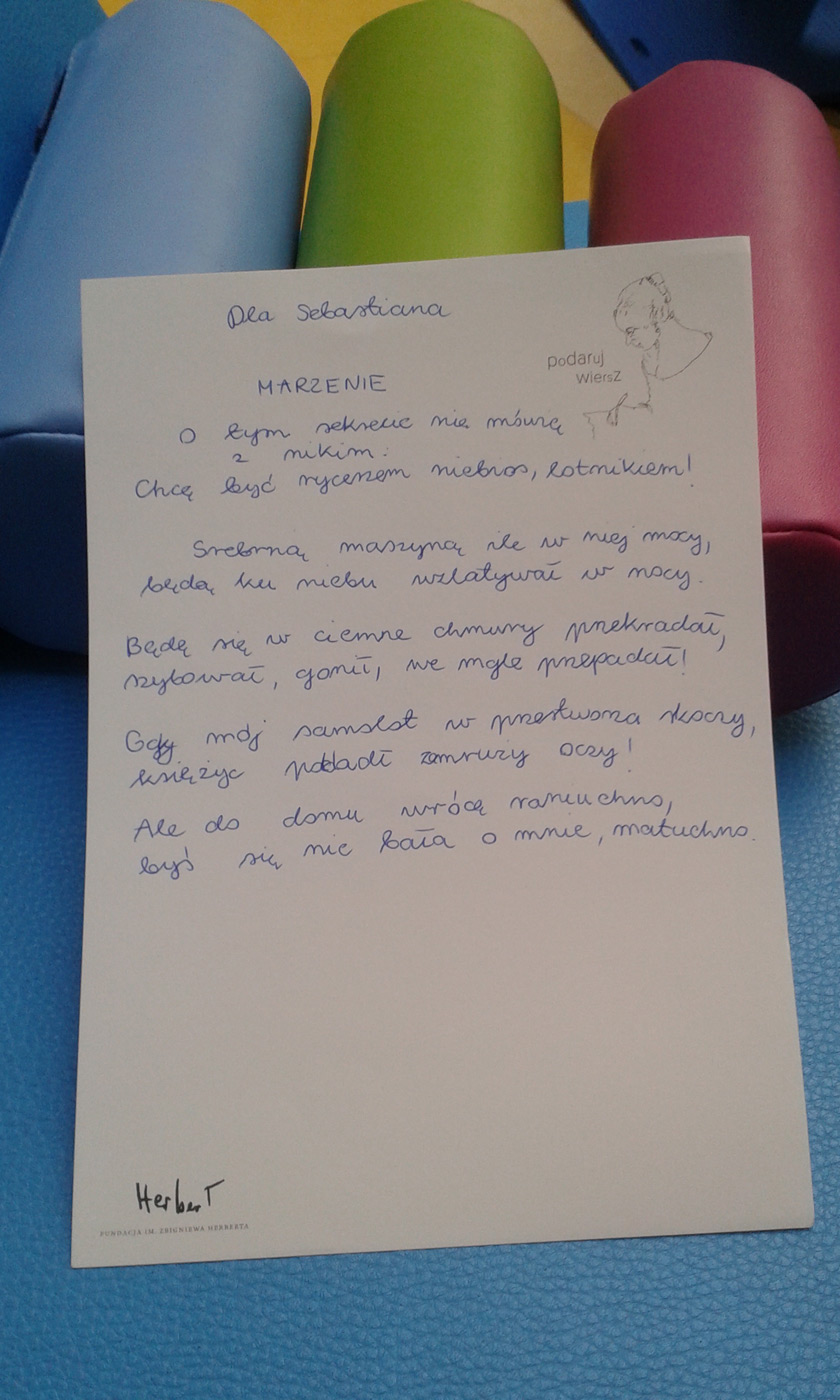 Dla Sebastiana
podaruj
wiersz
MARZENIE
O tym sekrecie nie mówię
z nikim:
Chcę być rycerzem niebios, lotnikiem!
Srebrną maszyną ile w niej mocy,
będę ku niebu wzlatywał w nocy.
Będę się w ciemne chmury przekradał,
szybował, gonił, we mgle przepadał!
Gdy mój samolot w przestworza skoczy,
księżyc pobladł zamruży oczy!
Ale do domu wrócę raniuchno,
byś się nie bała o mnie, matuchno.
Herbert
FUNDACJA IM. ZBIGNIEWA HERBERTA